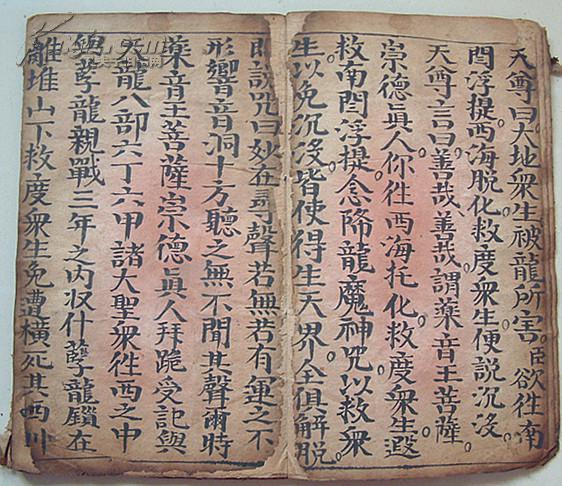 天尊曰大地衆生被龍所害。臣欲往南
閻浮提西海脱化救度衆生便説沉没。
天尊言曰善哉善哉。謂藥音王菩薩。
崇德眞人你往西海托化救度衆生。遐
救南閻浮提。念降龍魔神咒以救衆
生以免沉没皆使得生天界。全俱解脱
即説咒曰妙在尋聲若無若有運之不
形響音洞十方聽之無不聞其聲爾時
藥音王菩薩崇德眞人拜跪受記與
天龍八部六丁六甲諸大聖衆徃西之中
孽龍親戰三年之内収什孽龍鎖在
離堆山下救度衆生免遭橫死其西川